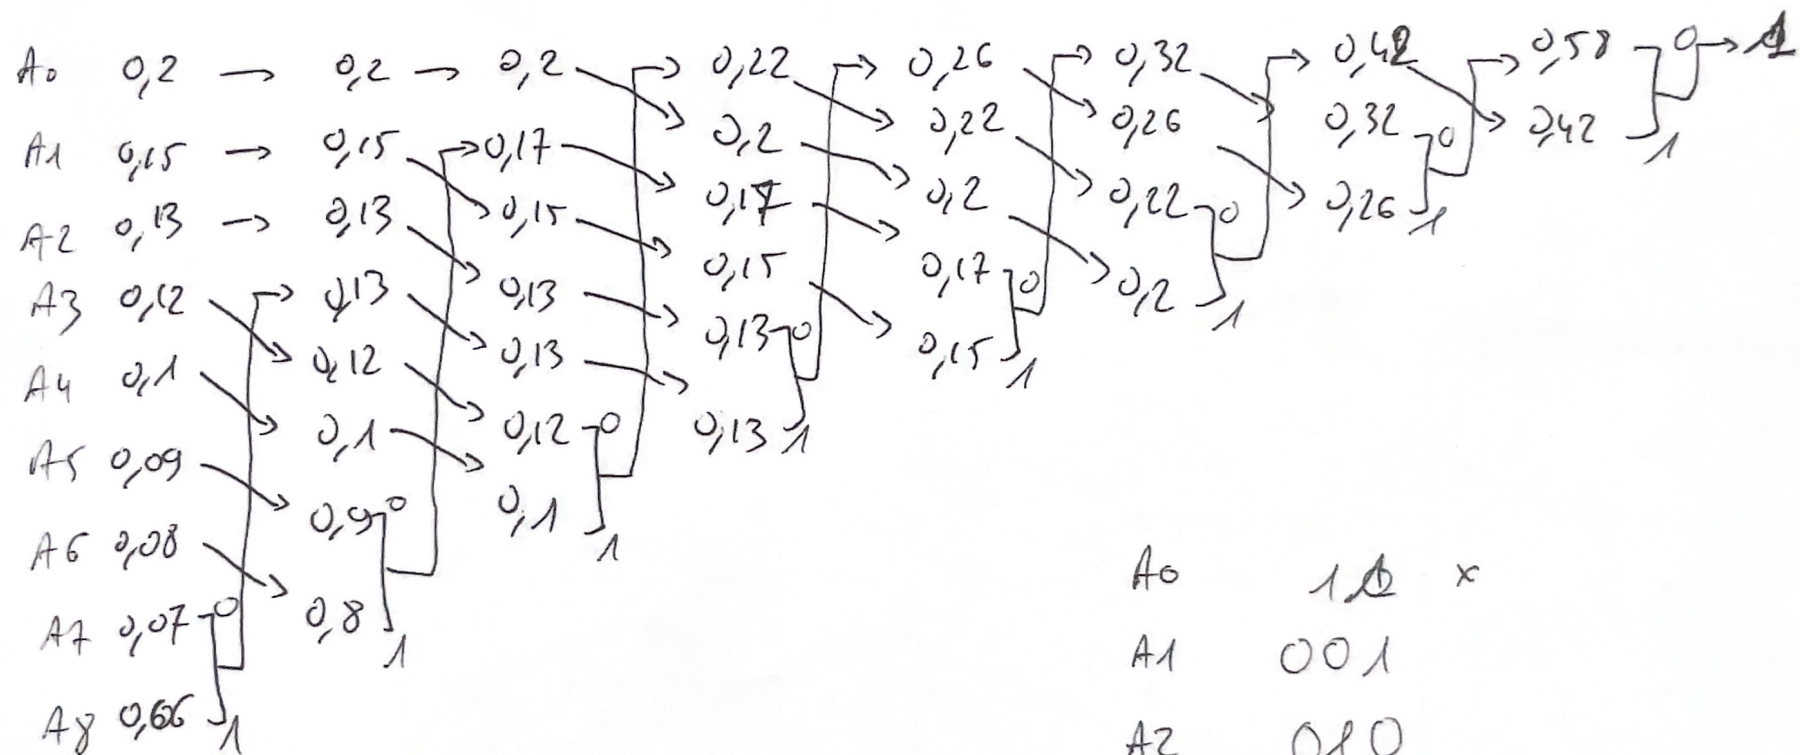 A0 0,2 → 0,2 → 0,2 0,22 0,26 0,32 0,42 0,58 0 → 1
A1 0,15 → 0,15 0,17 0,2 0,22 0,26 0,32 0 0,42 1
A2 0,13 → 0,13 0,15 0,17 0,2 0,22 0 0,26 1
A3 0,12 0,13 0,13 0,15 0,17 0 0,2 1
A4 0,1 0,12 0,13 0,13 0 0,15 1
A5 0,09 0,1 0,12 0 0,13 1
A6 0,08 0,9 0 0,1 1
A7 0,07 0 0,8 1
A8 0,06 1
A0 1 x
A1 001
A2 010